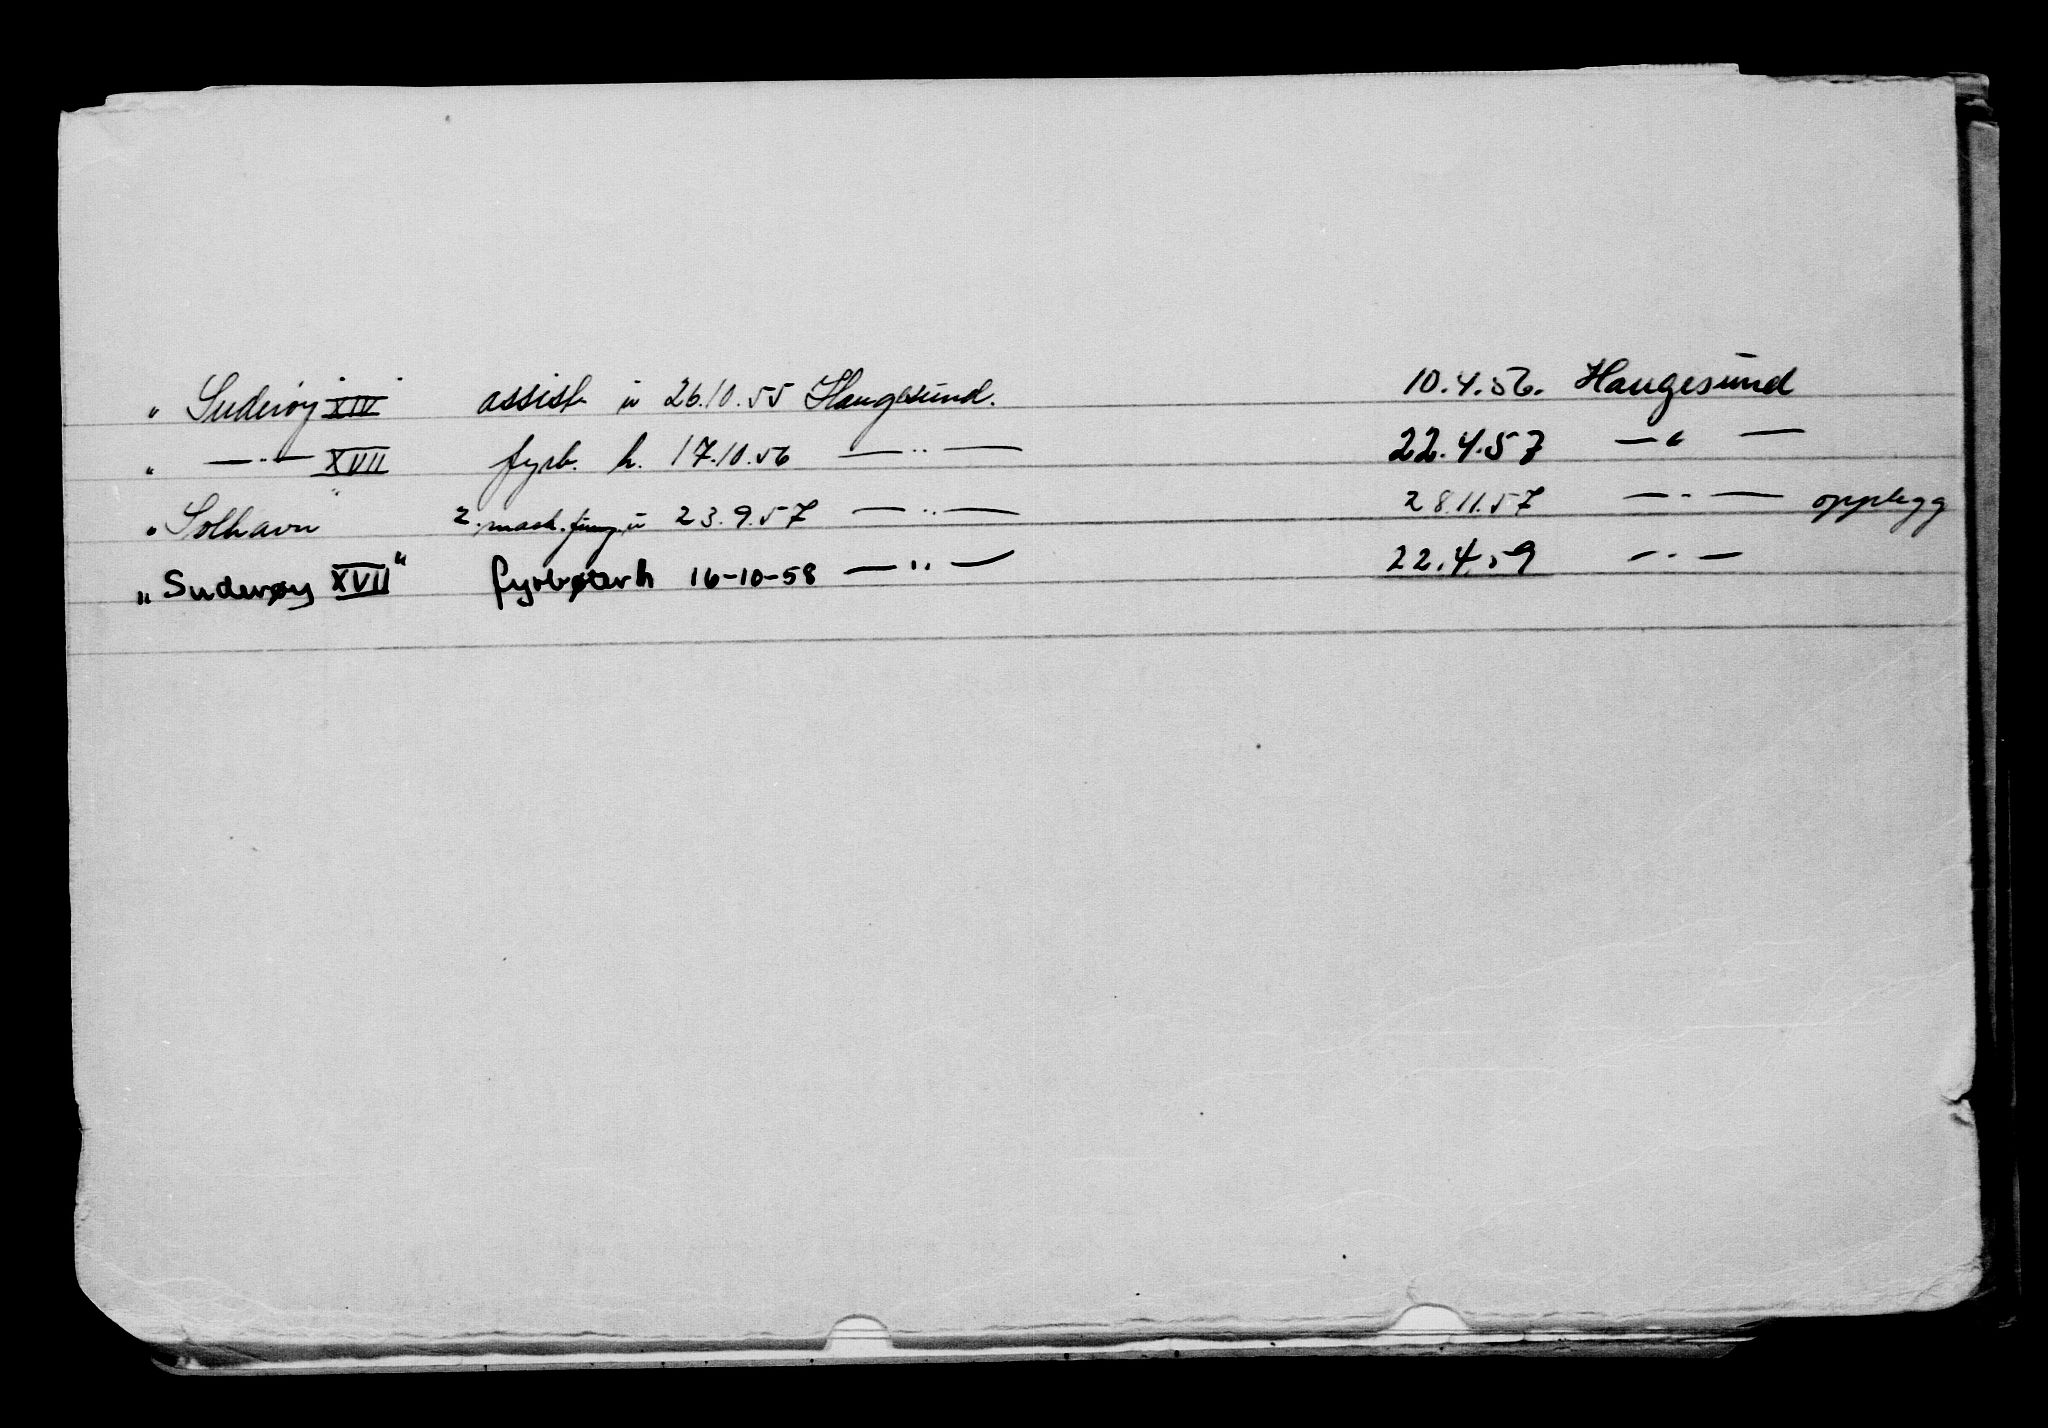 " Suderøy XIV" assist u 26.10.55 Haugesund. 10.4.56. Haugesund
" — " — XVII" fyrb. h. 17.10.56 — " — 22.4.57 — " —
" Solhavn" 2. mask. fung. u 23.9.57 — " — 28.11.57 — " — opplegg
" Suderøy XVII" fyrbøter h 16-10-58 — " — 22.4.59 — " —